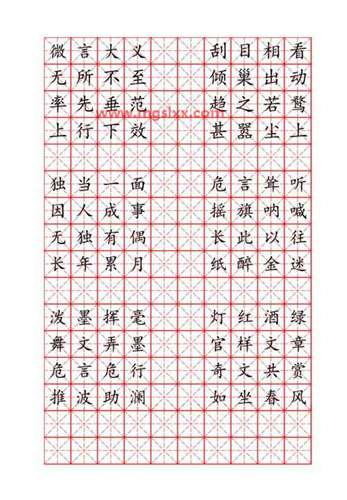 微言大义 刮目相看
无所不至 倾巢出动
率先垂范 趋之若鹜
上行下效 甚嚣尘上
www.mgslxx.com
独当一面 危言耸听
因人成事 摇旗呐喊
无独有偶 长此以往
长年累月 纸醉金迷
泼墨挥毫 灯红酒绿
舞文弄墨 官样文章
危言危行 奇文共赏
推波助澜 如坐春风